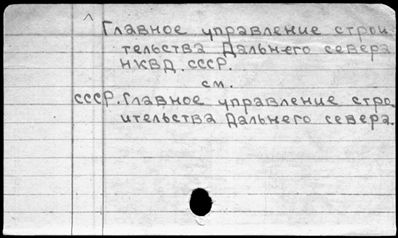 Главное управление строи
тельства Дальнего севера
НКВД СССР.
см.
СССР. Главное управление стро
ительства Дальнего севера.